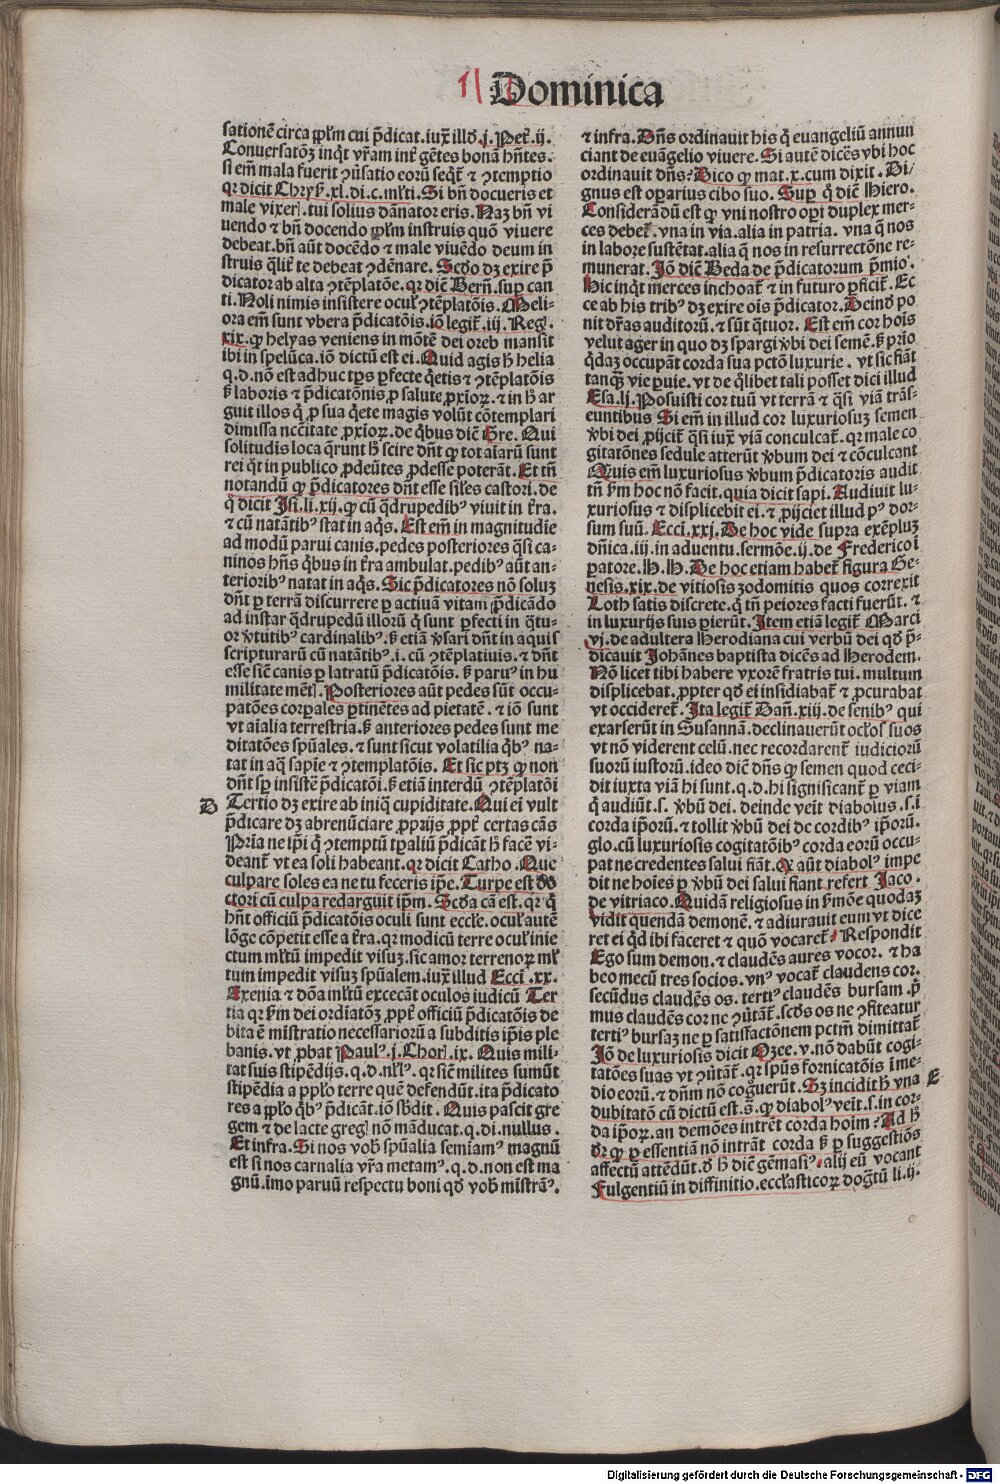 Dominica
sationē circa ꝓplm̄ cui p̄dicat. iux̄ illd̓. j. Pet̓. ij.
Conuersatōꝫ inqͥt vr̄am int̓ gētes bonā hn̄tes.
si em̄ mala fuerit ꝯūsatio eorū seqt̓ & ꝯtemptio
qꝛ dicit Chryſ. xl. di. c. ml̓ti. Si bn̄ docueris et
male vixer̄. tui solius dānatoꝛ eris. Naꝫ bn̄ vi
uendo & bn̄ docendo ꝓplm̄ instruis quō viuere
debeat. bn̄ aūt docēdo & male viuēdo deum in
struis qͣlit̓ te debeat ꝯdēnare. Scd̓o dꝫ exire p̄
dicatoꝛ ab alta ꝯtēplatōe. qꝛ dic̄ Bern̄. sup̱ can
ti. Noli nimis insistere ocul̓ ꝯtēplatōis. Meli-
oꝛa em̄ sunt vbera p̄dicatōis. iō legit̓. iij. Regl̓.
xix. ꝙ helyas veniens in mōtē dei oreb mansit
ibi in spelūca. iō dictū est ei. Quid agis h̓ helia
q. d. nō est adhuc tp̱s ꝑfecte qͥetis & ꝯtēplatōis
s̓ laboꝛis & p̄dicatōnis ꝓ salute ꝓxioꝝ. & in h̓ ar
guit illos qͥ ꝓ sua qͥete magis volūt cōtemplari
dimissa nccītate ꝓxioꝝ. de qͥbus dic̄ Gre. Qui
solitudis loca qͣrunt h̓ scire dn̄t ꝙ tot aīarū sunt
rei qͦt in publico ꝓdeūtes ꝓdesse poterāt. Et tn̄
notandū ꝙ p̄dicatoꝛes dn̄t esse sil̓es castoꝛi. de
qͦ dicit Isi. li. xij. ꝙ cū qͣdrupedibꝰ viuit in t̓ra.
& cū natātibꝰ stat in aqͣs. Est em̄ in magnitudie
ad modū parui canis. pedes posterioꝛes qͣsi ca-
ninos hn̄s qͥbus in t̓ra ambulat. pedibꝰ aūt an-
terioꝛibꝰ natat in aqͣs. Sic p̄dicatoꝛes nō soluꝫ
dn̄t ꝑ terrā discurrere ꝑ actiuā vitam p̄dicādo
ad instar qͣdrupedū illoꝛū qͥ sunt ꝑfecti in qͣtu-
oꝛ v̓tutibꝰ cardinalibꝰ. s̓ etiā v̓sari dn̄t in aquis
scripturarū cū natātibꝰ. i. cū ꝯtēplatiuis. & dn̄t
esse sic̄ canis ꝑ latratū p̄dicatōis. s̓ paruꝰ in hu
militate ment̓. Posterioꝛes aūt pedes sūt occu-
patōes coꝛꝑales ꝑtinētes ad pietatē. & iō sunt
vt aīalia terrestria. s̓ anterioꝛes pedes sunt me
ditatōes spūales. & sunt sicut volatilia qͥbꝰ na-
tat in aqͣ sapiē & ꝯtemplatōis. Et sic ptꝫ ꝙ non
dn̄t sp̱ insistē p̄dicatōi. s̓ etiā interdū ꝯtēplatōi
D
Tertio dꝫ exire ab iniqͣ cupiditate. Qui ei vult
p̄dicare dꝫ abrenūciare ꝓprijs. ꝓpt̓ certas cās
Pria ne ip̄i qͥ ꝯtemptū tp̱aliū p̄dicāt h̓ face̓ vi-
deant̓ vt ea soli habeant. qꝛ dicit Catho. Que
culpare soles ea ne tu feceris ip̄e. Turpe est do
ctoꝛi cū culpa redarguit ip̄m. Scd̓a cā est. qꝛ qͥ
hn̄t officiū p̄dicatōis oculi sunt eccl̓e. ocul̓ autē
lōge cōpetit esse a t̓ra. qꝛ modicū terre ocul̓ inie
ctum ml̓tū impedit visuꝫ. sic amoꝛ terrenoꝝ ml̓
tum impedit visuꝫ spūalem. iux̄ illud Ecci̓. xx.
Exenia & dōa ml̓tū excecāt oculos iudicū Ter
tia qꝛ s̓m dei oꝛdiatōꝫ ꝓpt̓ officiū p̄dicatōis de
bita ē mīstratio necessarioꝛū a subditis ip̄is ple
banis. vt ꝓbat Paulꝰ. j. Choꝛ̓. ix. Quis mili-
tat suis stipēdijs. q. d. nl̓lꝰ. qꝛ sic̄ milites sumūt
stipēdia a ppl̓o terre quē defendūt. ita p̄dicato
res a ppl̓o qͥbꝰ p̄dicāt. iō sb̓dit. Quis pascit gre
gem & de lacte gregl̓ nō māducat. q. di. nullus.
Et infra. Si nos vob̓ spūalia semīamꝰ magnū
est si nos carnalia vr̄a metamꝰ. q. d. non est ma
gnū. īmo paruū respectu boni qd̓ vob̓ mīstrāꝰ.
& infra. Dn̄s oꝛdinauit his qͥ euangeliū annun
ciant de euāgelio viuere. Si autē dicēs vbi hoc
oꝛdinauit dn̄s? Dico ꝙ mat. x. cum dixit. Di/
gnus est oꝑarius cibo suo. Sup̱ qͦ dic̄ Hiero.
Considerādū est ꝙ vni nostro oꝑi duplex mer-
ces debet̓. vna in via. alia in patria. vna qͣ nos
in laboꝛe sustētat. alia qͣ nos in resurrectōne re-
munerat. Iō dic̄ Beda de p̄dicatoꝛum p̄mio.
Hic inqͥt merces inchoat̓ & in futuro ꝑficit̓. Ec
ce ab his tribꝰ dꝫ exire oīs p̄dicatoꝛ. Deinde po
nit dr̄as auditoꝛū. & sūt qͣtuoꝛ. Est em̄ coꝛ hoīs
velut ager in quo dꝫ spargi v̓bi dei semē. s̓ prio
qͥdaꝫ occupāt coꝛda sua pctō luxurie. vt sic fiāt
tanqͣꝫ vie puie. vt de qͦlibet tali posset dici illud
Esa. lj. Posuisti coꝛ tuū vt terrā & qͣsi viā trās-
euntibus Si em̄ in illud coꝛ luxuriosuꝫ semen
v̓bi dei ꝓijcit̓ qͣsi iux̄ viā conculcat̓. qꝛ male co
gitatōnes sedule atterūt v̓bum dei & cōculcant
Quis em̄ luxuriosus v̓bum p̄dicatoꝛis audit
tn̄ s̓m hoc nō facit. quia dicit sapi. Audiuit lu-
xuriosus & displicebit ei. & ꝓijciet illud pꝰ doꝛ-
sum suū. Ecci̓. xxj. De hoc vide supra exēpluꝫ
dn̄ica. iij. in aduentu. sermōe. ij. de Frederico ī
patoꝛe. H. H. De hoc etiam habet̓ figura Ge-
nesis. xix. de vitiosis zodomitis quos coꝛrexit
Loth satis discrete. qͥ tn̄ peioꝛes facti fuerūt. &
in luxurijs suis ꝑierūt. Item etiā legit̓ Marci
vj. de adultera Herodiana cui verbū dei qd̓ p̄-
dicauit Johānes baptista dicēs ad Herodem.
Nō licet tibi habere vxoꝛē fratris tui. multum
displicebat. ꝓpter qd̓ ei insidiabat̓ & ꝓcurabat
vt occideret̓. Ita legit̓ Dan̄. xiij. de senibꝰ qui
exarserūt in Susannā. declinauerūt ocl̓os suos
vt nō viderent celū. nec recoꝛdarent̓ iudicioꝛū
suoꝛū iustoꝛū. ideo dic̄ dn̄s ꝙ semen quod ceci-
dit iuxta viā hi sunt. q. d. hi significant̓ ꝑ viam
qͥ audiūt. s. v̓bū dei. deinde veīt diabolus. s. ī
coꝛda ip̄oꝛū. & tollit v̓bū dei de coꝛdibꝰ ip̄oꝛū.
glo. cū luxuriosis cogitatōibꝰ coꝛda eoꝛū occu-
pat ne credentes salui fiāt. Qꝛ aūt diabolꝰ impe
dit ne hoīes ꝑ v̓bū dei salui fiant refert Jaco.
de vitriaco. Quidā religiosus in s̓mōe quodaꝫ
vidit quendā demonē. & adiurauit eum vt dice
ret ei qͥd ibi faceret & quō vocaret̓. Respondit
Ego sum demon. & claudēs aures vocoꝛ. & ha
beo mecū tres socios. vnꝰ vocat̓ claudens coꝛ.
secūdus claudēs os. tertiꝰ claudēs bursam. p̄
mus claudēs coꝛ ne ꝯūtāt̓. scd̓s os ne ꝯfiteatur
tertiꝰ bursaꝫ ne ꝑ satisfactōnem pctm̄ dimittāt̓
Iō de luxuriosis dicit Ozee. v. nō dabūt cogi-
tatōes suas vt ꝯūtāt̓. qꝛ spūs foꝛnicatōis ī me-
dio eoꝛū. & dn̄m nō cog̓uerūt. Sꝫ incidit h̓ vna
E
dubitatō cū dictū est. s̓. ꝙ diabolꝰ veīt. s. in coꝛ-
da ip̄oꝝ. an demōes intrēt coꝛda hoim? Ad h̓
dr̓ ꝙ ꝑ essentiā nō intrāt coꝛda s̓ ꝑ suggestiōs
affectū attēdūt. d̓ h̓ dic̄ gēmasiꝰ. alij eū vocant
Fulgentiū in diffinitio. eccl̓asticoꝝ dog̓tū li. ij.
Digitalisierung gefördert durch die Deutsche Forschungsgemeinschaft - DFG